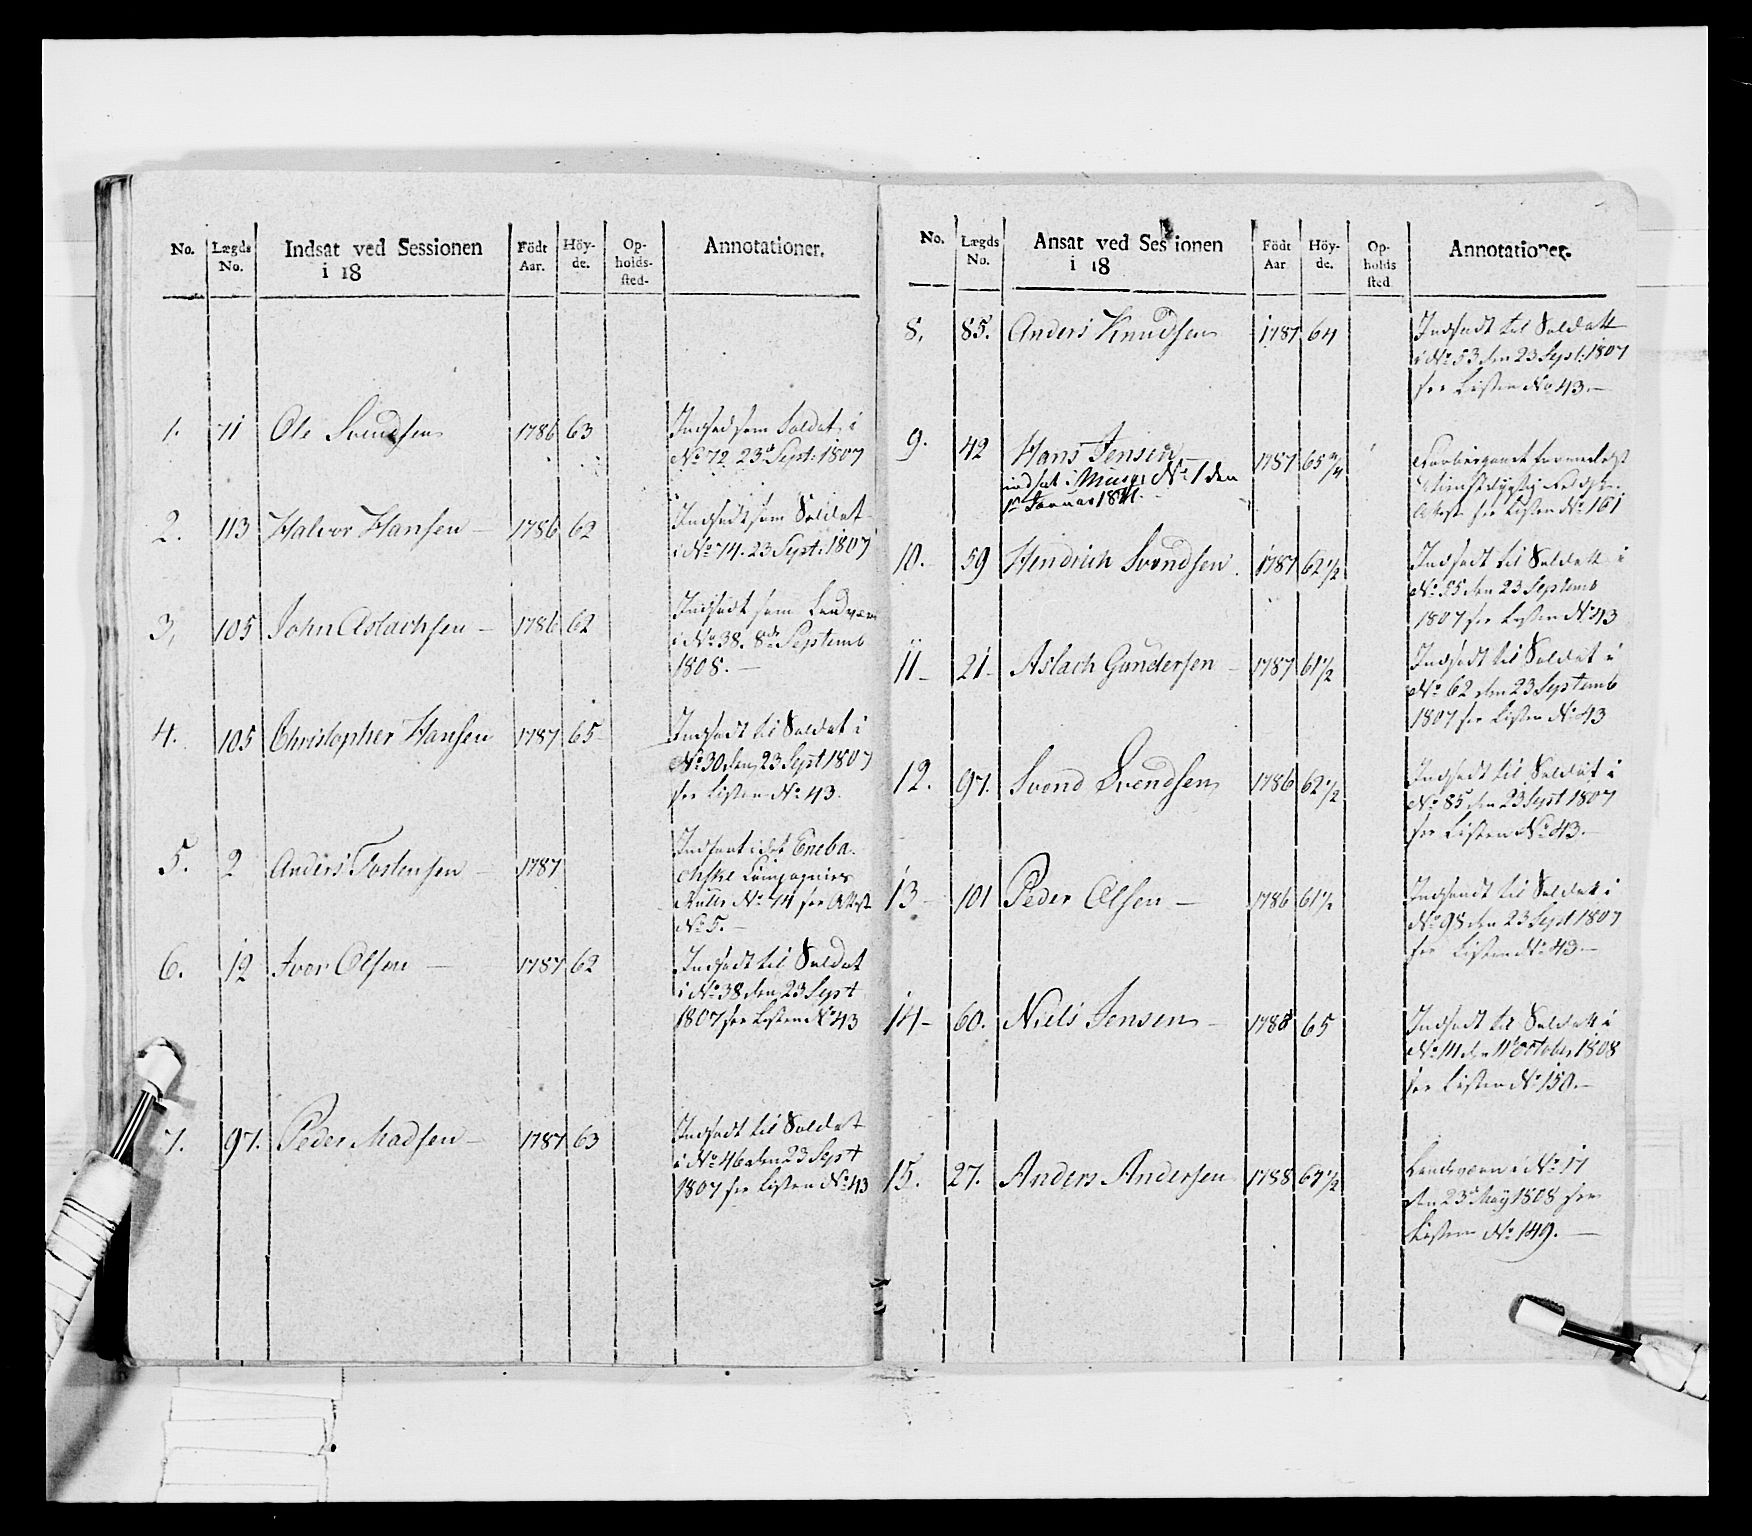 No. Lægds No. Indsat ved Sessionen i 18 Födt Aar. Höy-de. Op-holds-sted- Annotationer.
1. 71 Ole Svendsen 1786 63 Indsed som Soldat i
No 72 23d Sept. 1807
2. 113 Halvor Hansen – 1786 62 Indsedt som Soldat
i No 74. 23 Sept. 1807
3, 105 John Aslachsen – 1786 62 Indsedt som Landværn
i No 38. 8de Septemb
1808. –
4. 105 Christopher Hansen 1787 65 Indsedt til Soldat i
No 30 den 23 Sept 1807
see Listen No 43.
5. 2 Anders Tostensen – 1787 Indført i det Eneba-
chske Compagnies
Rulle No see Attest
No 5. –
6. 12 Iver Olsen – 1787 62 Indsedt til Soldat
i No 38 den 23 Sept
1807 see Listen No 43
7. 97. Peder Madsen – 1787 63 Indsedt til Soldat
i No 46 den 23 Sept
1807 see Listen No 43
No. Lægds No. Ansat ved Sessionen i 18 Födt Aar Höy-de. Op-holds sted Annotationer.
8. 85. Anders Knudsen 1787 64 Indsedt til Soldatt
i No 53 den 23 Sept. 1807
see Listen No 43. –
9. 42 Hans Jensen 1787 65 3/4
indsat i No 1 den
1te Januar 1811.
Attest see Listen No 161
10. 59 Hendrich Svendsen. 1787 62 1/2 Indsedt til Soldatt i
No 55 den 23 Septemb
1807 see Listen No 43
11 – 21 – Aslach Gundersen – 1787 61 1/2 Indsedt til Soldat i
No 62 den 23 Septemb
1807 see Listen No 43
12. 97. Svend Svendsen 1786 62 1/2 Indsedt til Soldat i
No 85 den 23 Sept 1807
see Listen No 43. –
13 – 101 Peder Olsen – 1786 61 1/2 Indsendt til Soldat i
No 98 den 23 Sept 1807
see Listen No 43. –
14 – 60. Niels Jensen – 1788 65 Indsedt til Soldatt i
No 111 den 11t October 1808
see Listen No 150. –
15. 27. Anders Andersen 1788 63 1/2 Landeværn i No 17
den 23d May 1808 see
Listen No 149. –